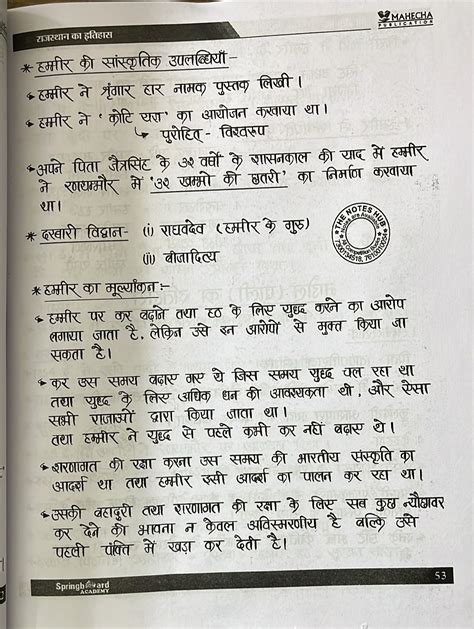 राजस्थान का इतिहास
MAHECHA
PUBLICATION
* हम्मीर की सांस्कृतिक उपलब्धियाँ-
हम्मीर ने श्रृंगार हार नामक पुस्तक लिखी ।
हम्मीर ने ' कोटि यज्ञ' का आयोजन करवाया था ।
पुरोहित - विश्वरूप
अपने पिता जैत्रसिंह के ३२ वर्षों के शासनकाल की याद में हम्मीर
ने रणथम्भौर में '३२ खम्भों की छतरी' का निर्माण करवाया
था ।
* दरबारी विद्वान- (i) राघवदेव (हम्मीर के गुरु)
(ii) बीजादित्य
THE NOTES HUB
* हम्मीर का मूल्यांकन:-
हम्मीर पर कर बढ़ाने तथा हठ के लिए युद्ध करने का आरोप
लगाया जाता है, लेकिन उसे इन आरोपों से मुक्त किया जा
सकता है ।
कर उस समय बढ़ाए गए थे जिस समय युद्ध चल रहा था
तथा युद्ध के लिए अधिक धन की आवश्यकता थी, और ऐसा
सभी राजाओं द्वारा किया जाता था ।
तथा हम्मीर ने युद्ध से पहले कभी कर नहीं बढ़ाए थे ।
शरणागत की रक्षा करना उस समय की भारतीय संस्कृति का
आदर्श था तथा हम्मीर उसी आदर्श का पालन कर रहा था ।
उसकी बहादुरी तथा शरणागत की रक्षा के लिए सब कुछ न्यौछावर
कर देने की भावना न केवल अविस्मरणीय है बल्कि उसे
पहली पंक्ति में खड़ा कर देती है ।
Springboard
ACADEMY
53